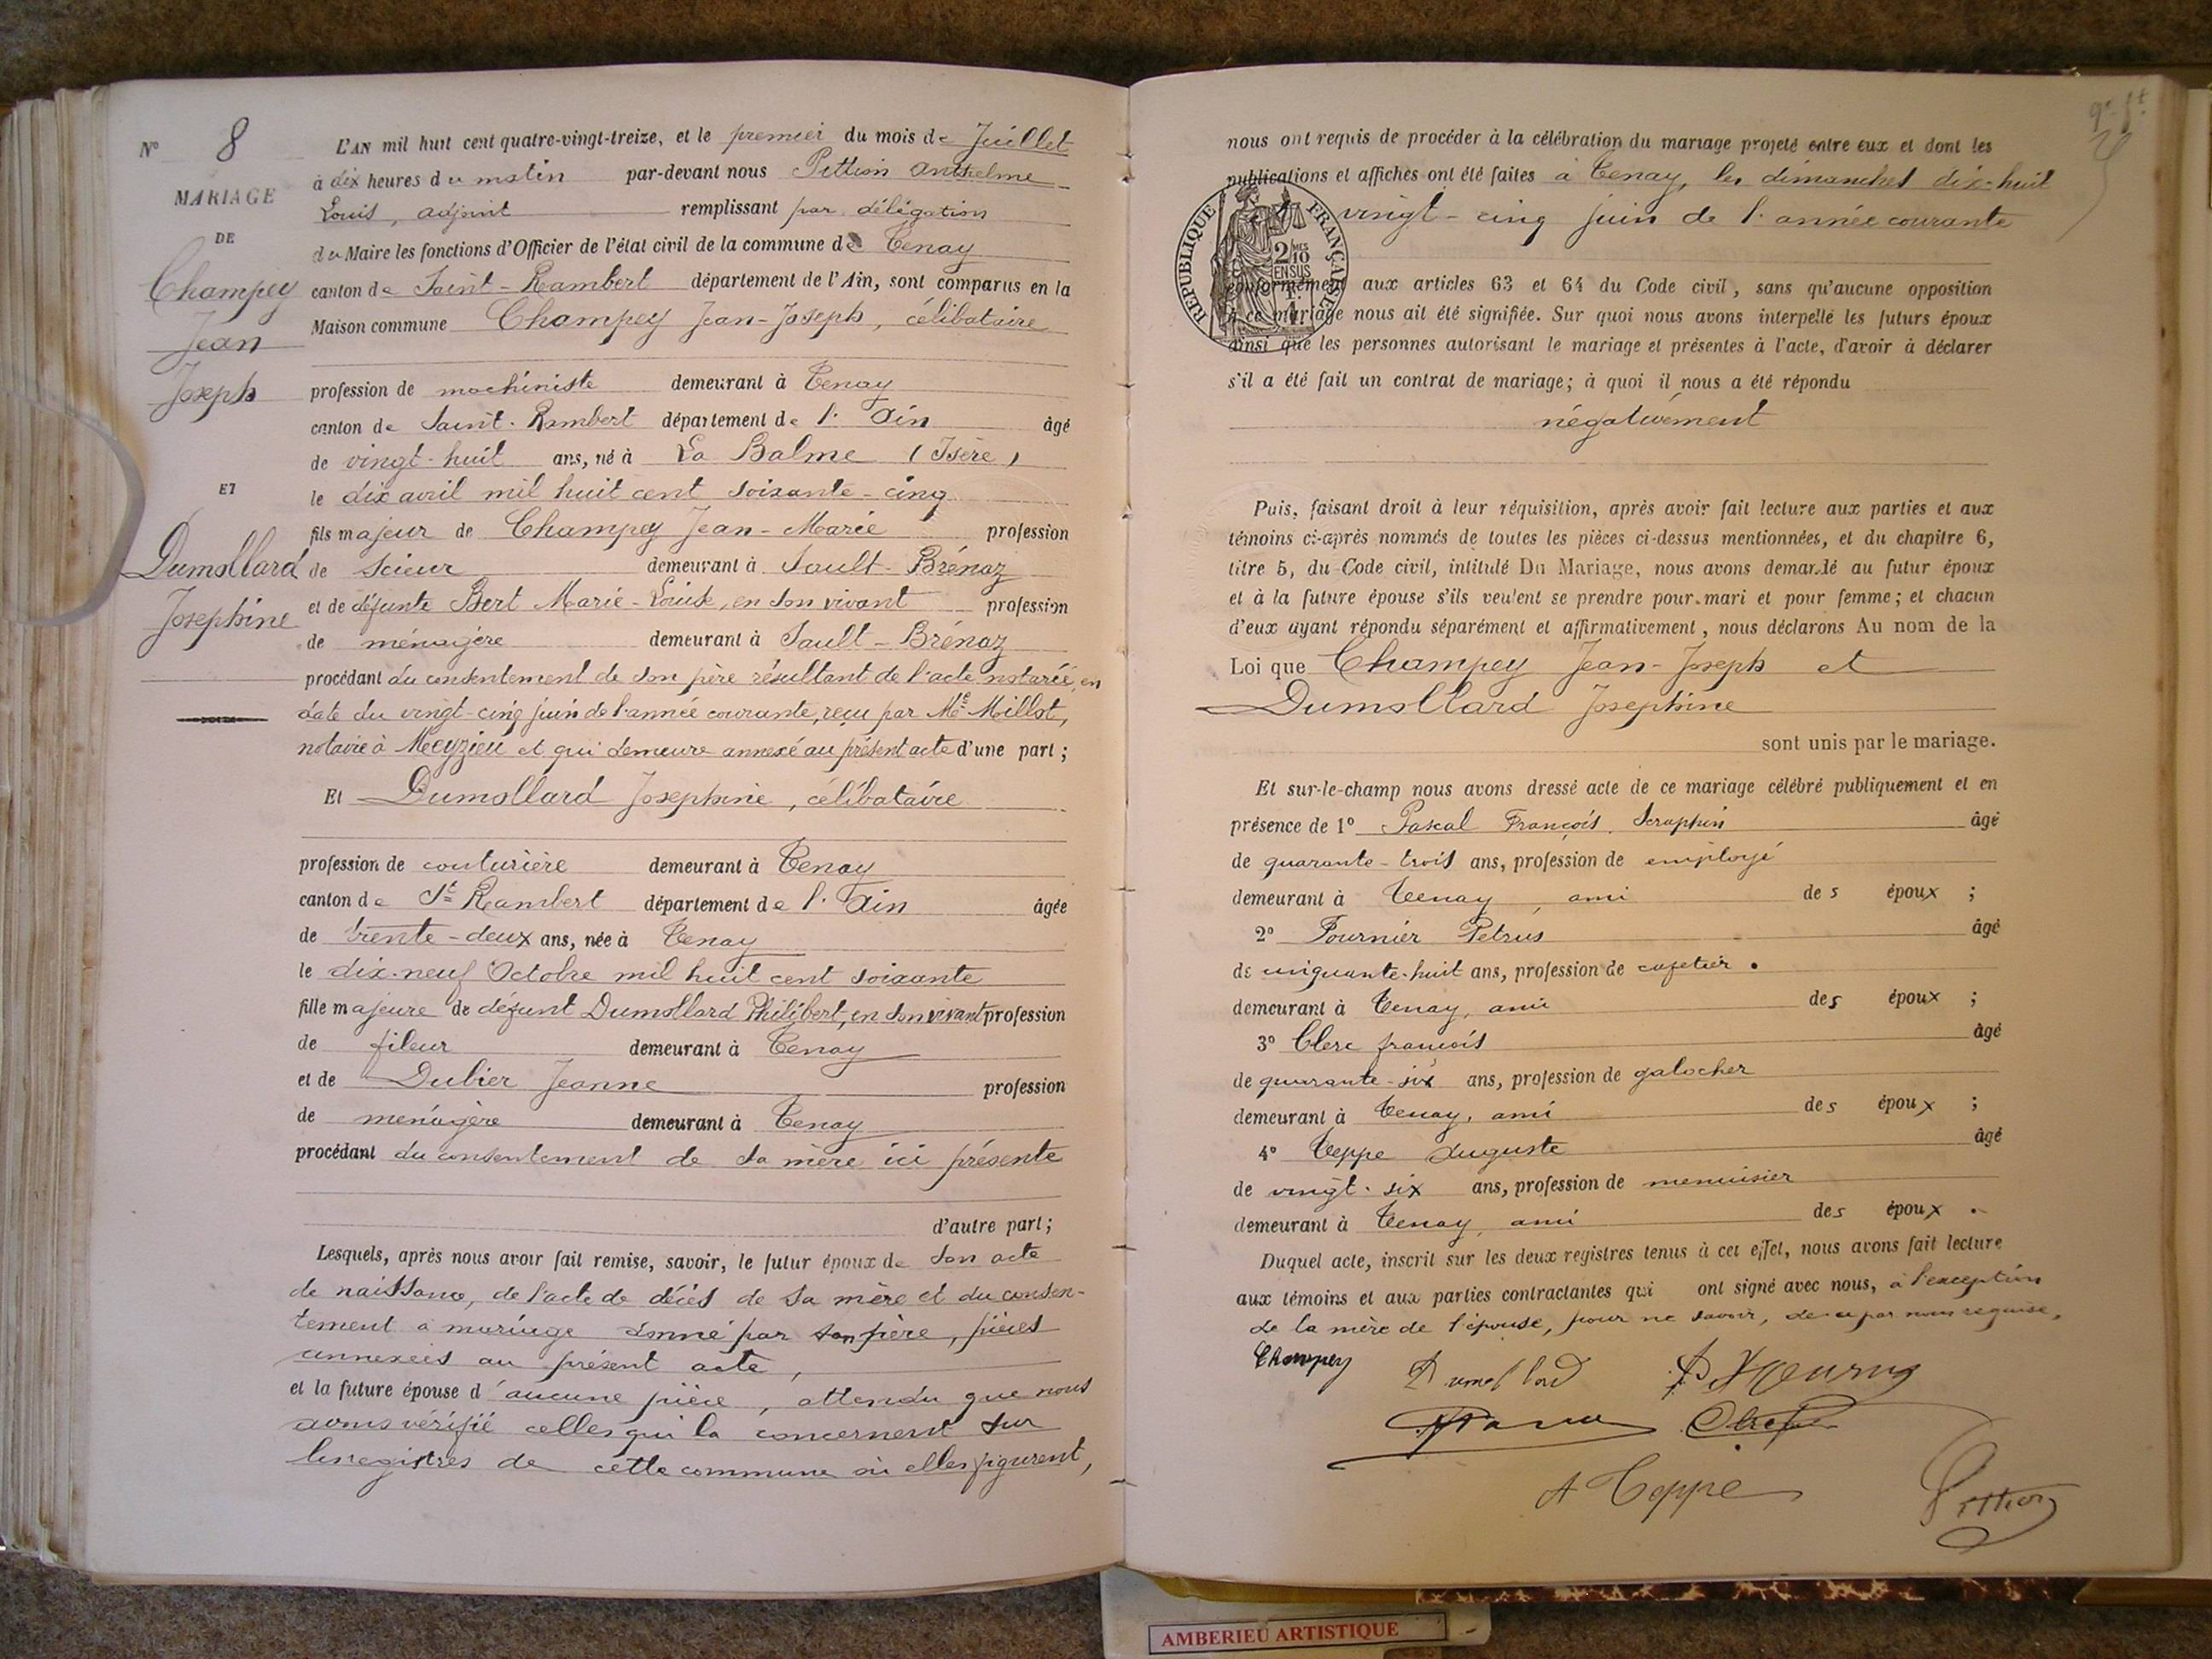 N° 8
MARIAGE
DE
Champey
Jean
Joseph
ET
Dumollard
Josephine
L'AN mil huit cent quatre-vingt-treize, et le premier du mois de Juillet
à dix heures du matin par-devant nous Pittion Anthelme
Louis, adjoint remplissant par délégation
du Maire les fonctions d'Officier de l'état civil de la commune de Tenay
canton de Saint-Rambert département de l'Ain, sont comparus en la
Maison commune Champey Jean-Joseph, célibataire
profession de machiniste demeurant à Tenay
canton de Saint-Rambert département de l'Ain âgé
de vingt-huit ans, né à La Balme (Isère)
le dix avril mil huit cent soixante-cinq
fils majeur de Champey Jean-Marie profession
de scieur demeurant à Sault-Brénaz
et de défunte Bert Marie-Louise, en son vivant profession
de ménagère demeurant à Sault-Brénaz
procédant du consentement de son père résultant de l'acte notarié, en
date du vingt-cinq juin de l'année courante, reçu par Me Millot,
notaire à Meyzieu et qui demeure annexé au présent acte d'une part;
Et Dumollard Josephine, célibataire
profession de couturière demeurant à Tenay
canton de St Rambert département de l'Ain âgée
de trente-deux ans, née à Tenay
le dix-neuf Octobre mil huit cent soixante
fille majeure de défunt Dumollard Philibert, en son vivant profession
de fileur demeurant à Tenay
et de Dubier Jeanne profession
de ménagère demeurant à Tenay
procédant du consentement de sa mère ici présente
d'autre part;
Lesquels, après nous avoir fait remise, savoir, le futur époux de son acte
de naissance, de l'acte de décès de sa mère et du consen-
tement à mariage donné par son père, pièces
annexées au présent acte,
et la future épouse d'aucune pièce, attendu que nous
avons vérifié celles qui la concernent sur
les registres de cette commune où elles figurent,
nous ont requis de procéder à la célébration du mariage projeté entre eux et dont les
publications et affiches ont été faites à Tenay, les dimanches dix-huit
vingt-cinq juin de l'année courante
REPUBLIQUE FRANÇAISE
2/10 MES
EN SUS
conformément aux articles 63 et 64 du Code civil, sans qu'aucune opposition
à ce mariage nous ait été signifiée. Sur quoi nous avons interpellé les futurs époux
ainsi que les personnes autorisant le mariage et présentes à l'acte, d'avoir à déclarer
s'il a été fait un contrat de mariage; à quoi il nous a été répondu
négativement
Puis, faisant droit à leur réquisition, après avoir fait lecture aux parties et aux
témoins ci-après nommés de toutes les pièces ci-dessus mentionnées, et du chapitre 6,
titre 5, du Code civil, intitulé Du Mariage, nous avons demandé au futur époux
et à la future épouse s'ils veulent se prendre pour mari et pour femme; et chacun
d'eux ayant répondu séparément et affirmativement, nous déclarons Au nom de la
Loi que Champey Jean-Joseph et
Dumollard Josephine
sont unis par le mariage.
Et sur-le-champ nous avons dressé acte de ce mariage célébré publiquement et en
présence de 1° Pascal François Seraphin âgé
de quarante-trois ans, profession de employé
demeurant à Tenay, ami des époux;
2° Fournier Petrus âgé
de cinquante-huit ans, profession de cafetier.
demeurant à Tenay, ami des époux;
3° Clerc françois âgé
de quarante-six ans, profession de galocher
demeurant à Tenay, ami des époux;
4° Teppe Auguste âgé
de vingt-six ans, profession de menuisier
demeurant à Tenay, ami des époux.
Duquel acte, inscrit sur les deux registres tenus à cet effet, nous avons fait lecture
aux témoins et aux parties contractantes qui ont signé avec nous, à l'exception
de la mère de l'épouse, pour ne savoir, de ce par nous requise.
Champey Dumollard
A Teppe Pittion
AMBERIEU ARTISTIQUE